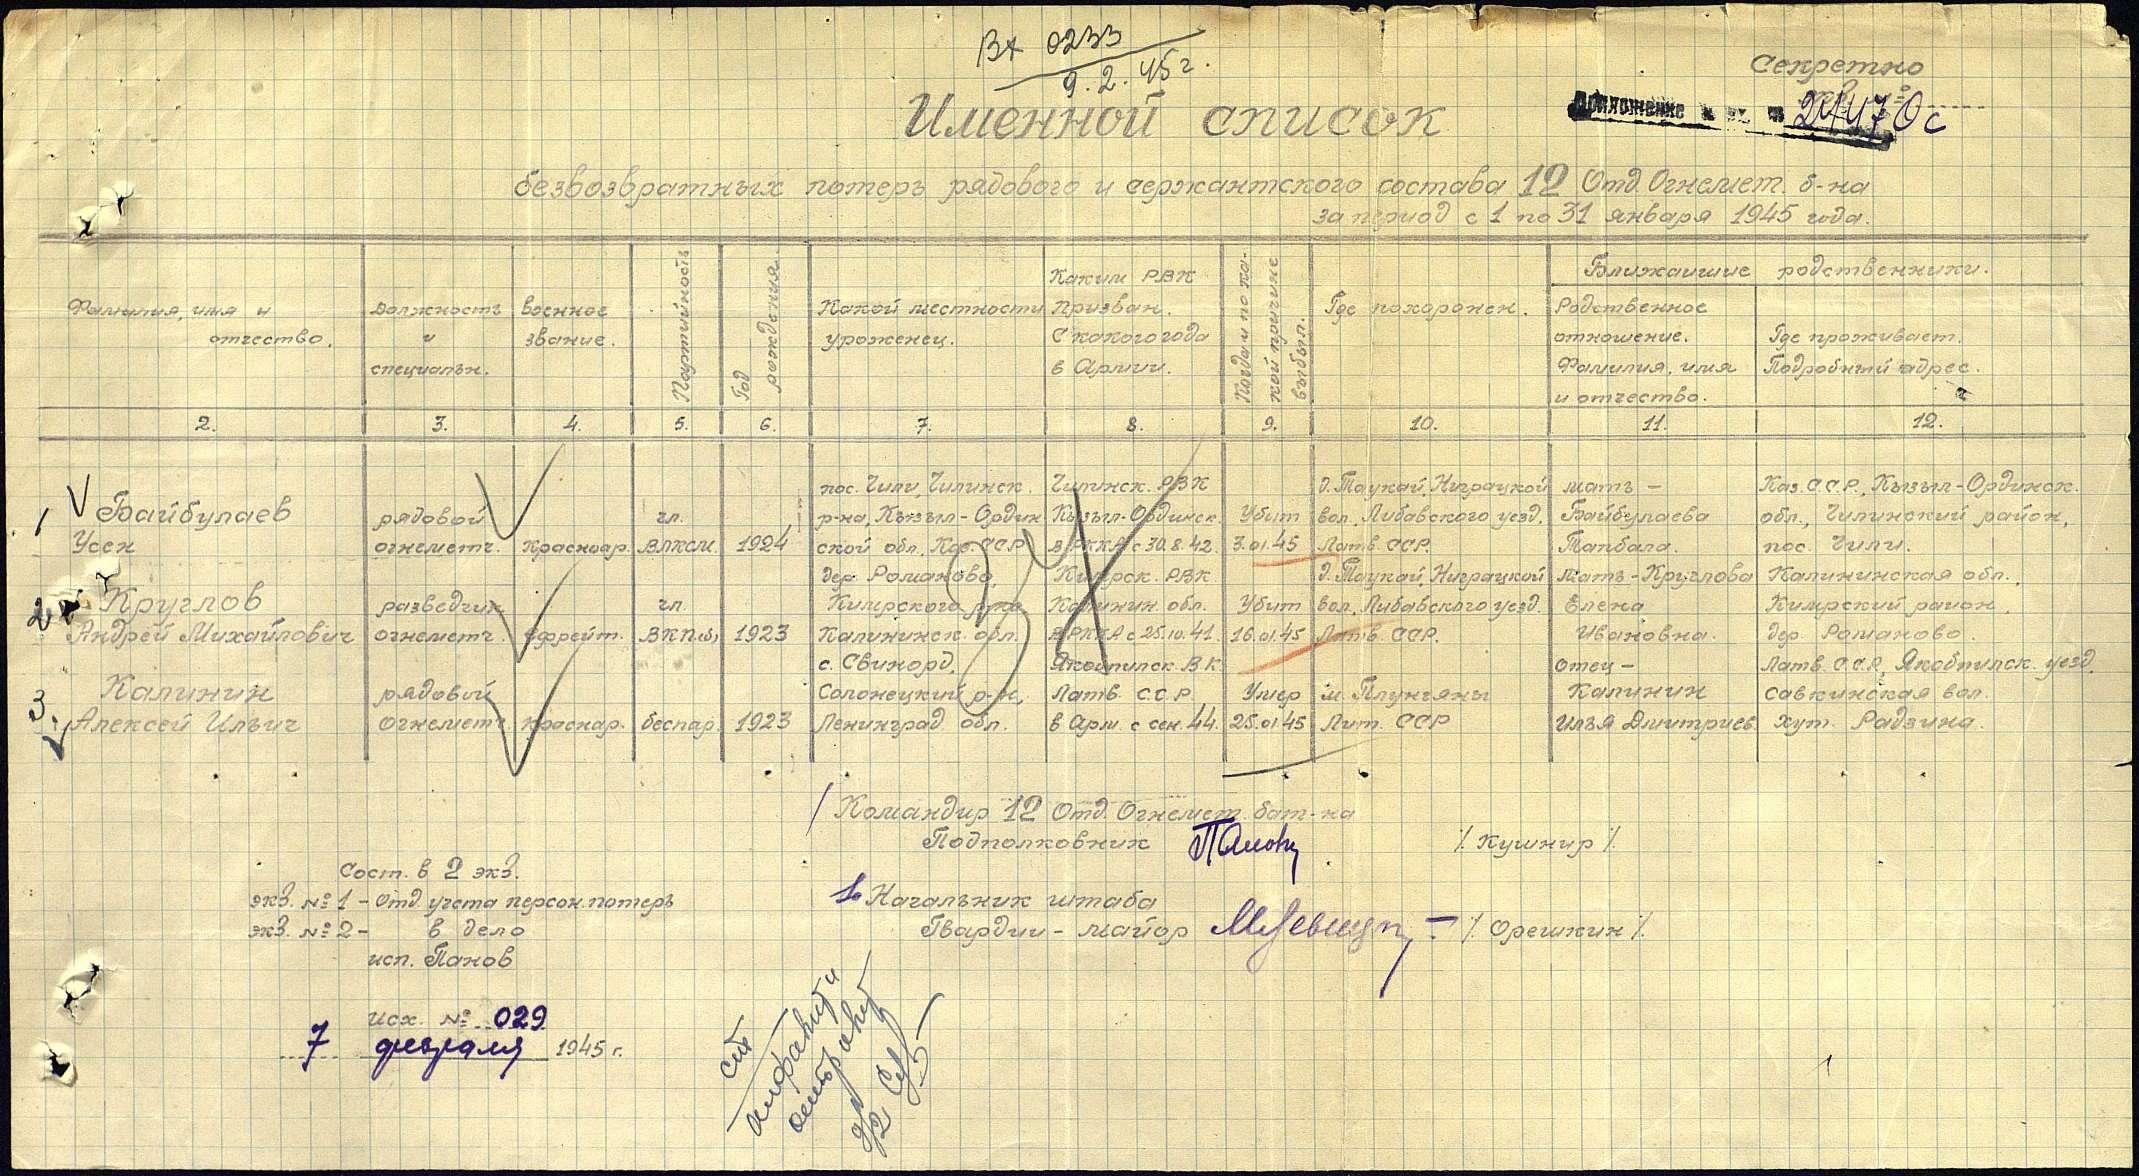 Вх 0233
9.2.45г.
Секретно
экз. №
Приложение к вх. № 2470с
Именной список
безвозвратных потерь рядового и сержантского состава 12 Отд. Огнемет. б-на
за период с 1 по 31 января 1945 года.
Фамилия, имя и отчество.
Должность и специальн.
Военное звание.
Партийность
Год рождения.
Какой местности уроженец.
Каким РВК призван. С какого года в Армии.
Когда и по какой причине выбыл.
Где похоронен.
Ближайшие родственники.
Родственное отношение. Фамилия, имя и отчество.
Где проживает. Подробный адрес.
2. 3. 4. 5. 6. 7. 8. 9. 10. 11. 12.
пос. Чили, Чилинск. Чилинск. РВК д. Таукай, Ниграцкой мать - Каз. С.С.Р., Кызыл-Ординск.
1 Байбулаев рядовой чл. р-на, Кызыл-Ордин Кызыл-Ординск. Убит вол., Либавского уезд. Байбулаева обл., Чилинский район,
Усен огнеметч. Красноар. ВЛКСМ. 1924 ской обл. Каз. ССР. в РККА с 30.8.42. 3.01.45 Латв. ССР. Тапбала. пос. Чили.
дер. Романово, Кимрск. РВК д. Таукай, Ниграцкой Мать-Круглова Калининская обл.,
2 Круглов разведчик чл. Кимрского р-на Калинин. обл. Убит вол., Либавского уезд. Елена Кимрский район,
Андрей Михайлович огнеметч. ефрейт. ВКП(б) 1923 Калининск. обл. в РККА с 25.10.41. 16.01.45 Латв. ССР. Ивановна. дер. Романово.
с. Свинорд, Якобпилск. В К отец - Латв. С.С.Р., Якобпилск. уезд,
3. Калинин рядовой Солонецкий р-н, Латв. С.С.Р. Умер м. Плунгяны Калинин савкинская вол.
Алексей Ильич огнеметч. краснар. беспар. 1923 Ленинград. обл. в Арм. с сен. 44. 25.01.45 Лит. ССР Илья Дмитриев. хут. Радзина.
Командир 12 Отд. Огнемет. бат-на
Подполковник /Кушнир/
Сост. в 2 экз.
экз. №1 - Отд. учета персон. потерь
экз. №2 - в дело
исп. Панов
Начальник штаба
Гвардии - майор /Орешкин/
исх. № 029
7 февраля 1945 г.